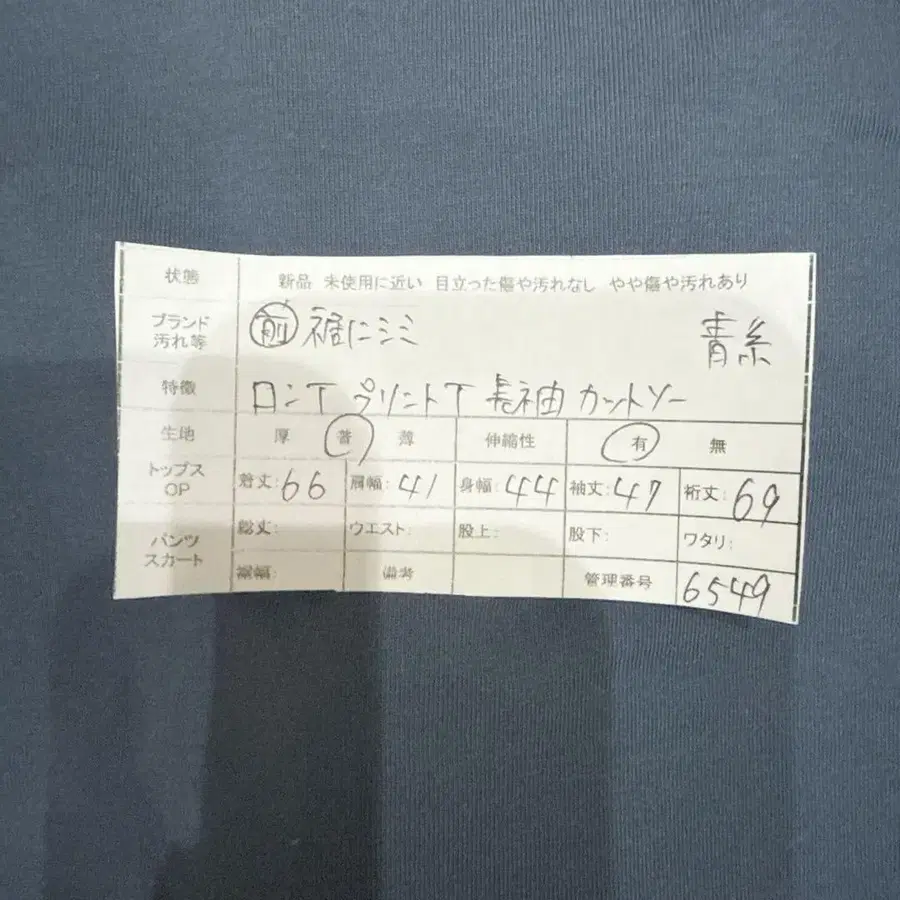 状態 新品 未使用に近い 目立った傷や汚れなし やや傷や汚れあり
ブランド
汚れ等 前 裾にシミ 青系
特徴 ロンT プリントT 長袖 カットソー
生地 厚 普 薄 伸縮性 有 無
トップス
OP 着丈:66 肩幅:41 身幅:44 袖丈:47 裄丈:69
パンツ
スカート 総丈: ウエスト: 股上: 股下: ワタリ:
裾幅: 備考 管理番号 6549